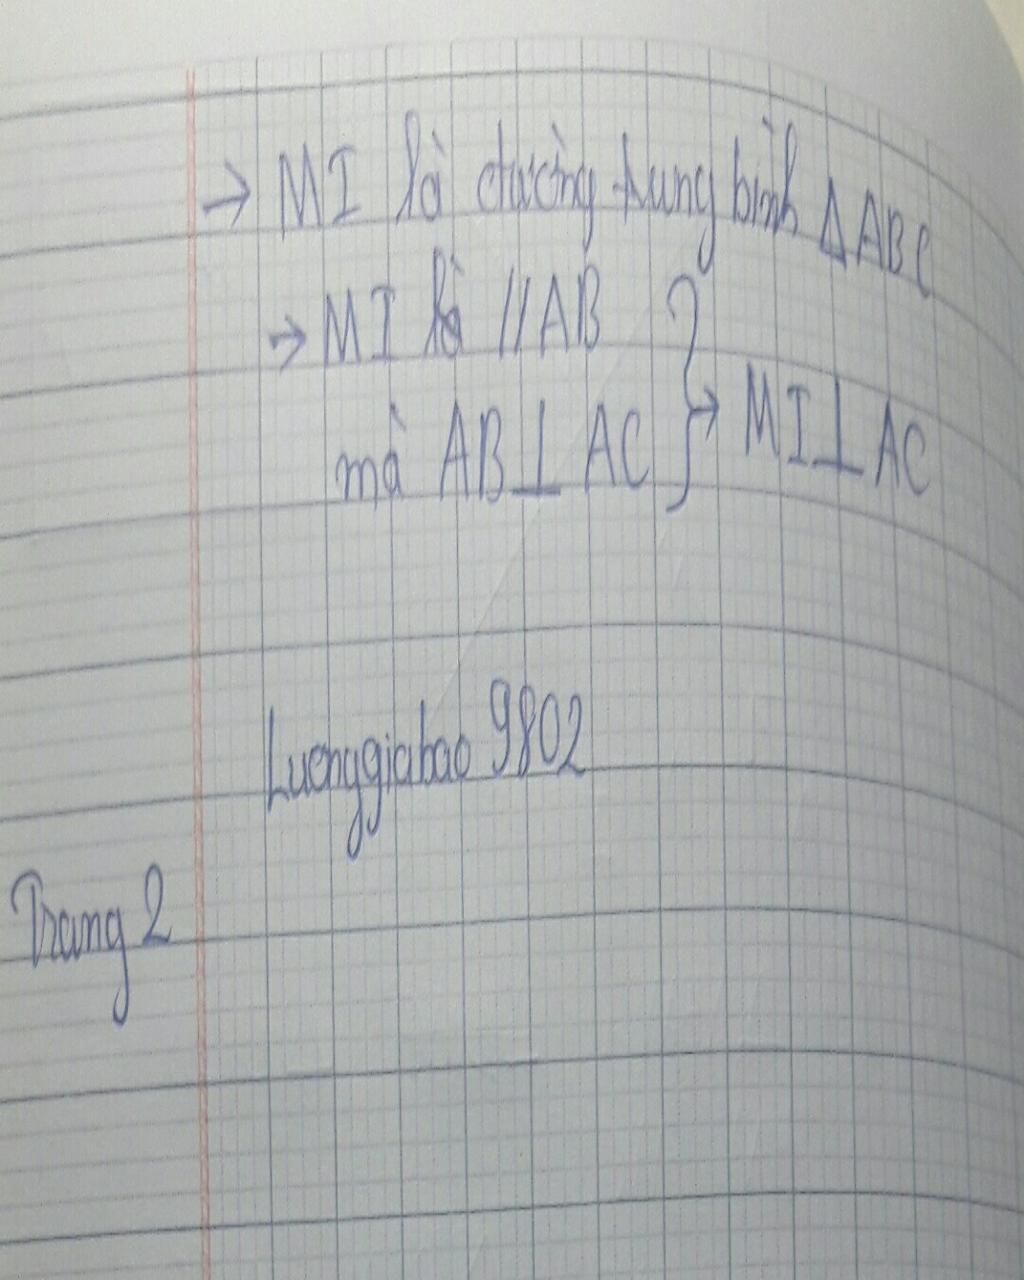 → MI là đường trung bình ΔABC
→ MI // AB
mà AB ⊥ AC } → MI ⊥ AC
Luonggiabao 9802
Trang 2